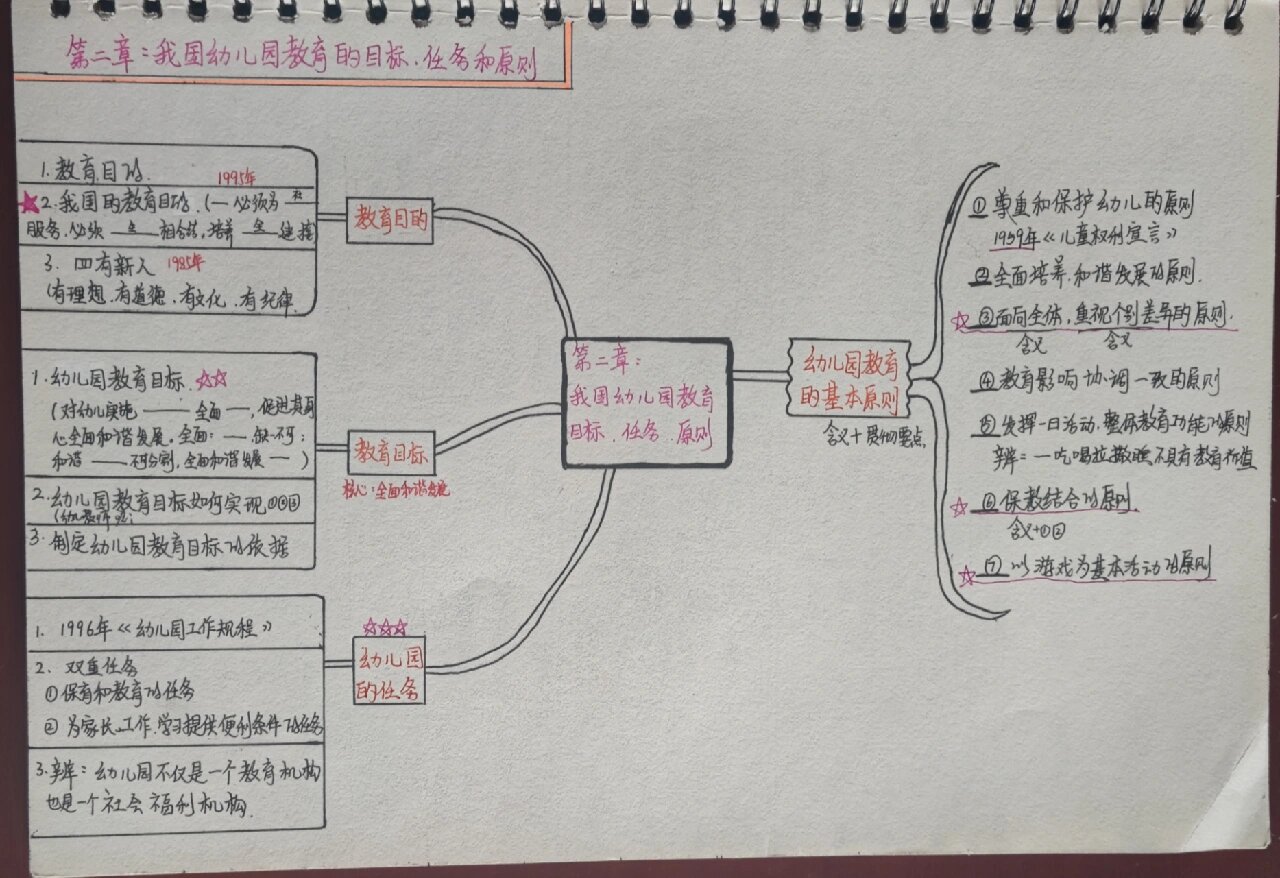 第二章:我国幼儿园教育的目标.任务和原则
1.教育目的.
1995年
2.我国的教育目的.(— 必须为 —
服务.必须 —— 相结合,培养 — 建接
3. 四有新人 1985年
(有理想.有道德.有文化.有纪律.
教育目的
1.幼儿园教育目标.
(对幼儿实施 —— 全面 —,促进其身
心全面和谐发展。全面:— 缺一不可;
和谐 —— 不可分割,全面和谐发展 — )
2.幼儿园教育目标如何实现①②③
3.制定幼儿园教育目标的依据
教育目标
核心:全面和谐发展
1. 1996年《幼儿园工作规程》
2. 双重任务
①保育和教育的任务
② 为家长工作.学习提供便利条件的任务
3.辨:幼儿园不仅是一个教育机构
也是一个社会福利机构.
幼儿园
的任务
第二章:
我国幼儿园教育
目标.任务.原则
幼儿园教育
的基本原则
含义+贯彻要点
① 尊重和保护幼儿的原则
1959年《儿童权利宣言》
②全面培养.和谐发展的原则.
③面向全体,重视个别差异的原则.
含义 含义
④教育影响协调一致的原则
⑤发挥一日活动.整体教育功能的原则
辨:一吃喝拉撒睡不具有教育价值
⑥保教结合的原则.
含义+①②
⑦ 以游戏为基本活动的原则